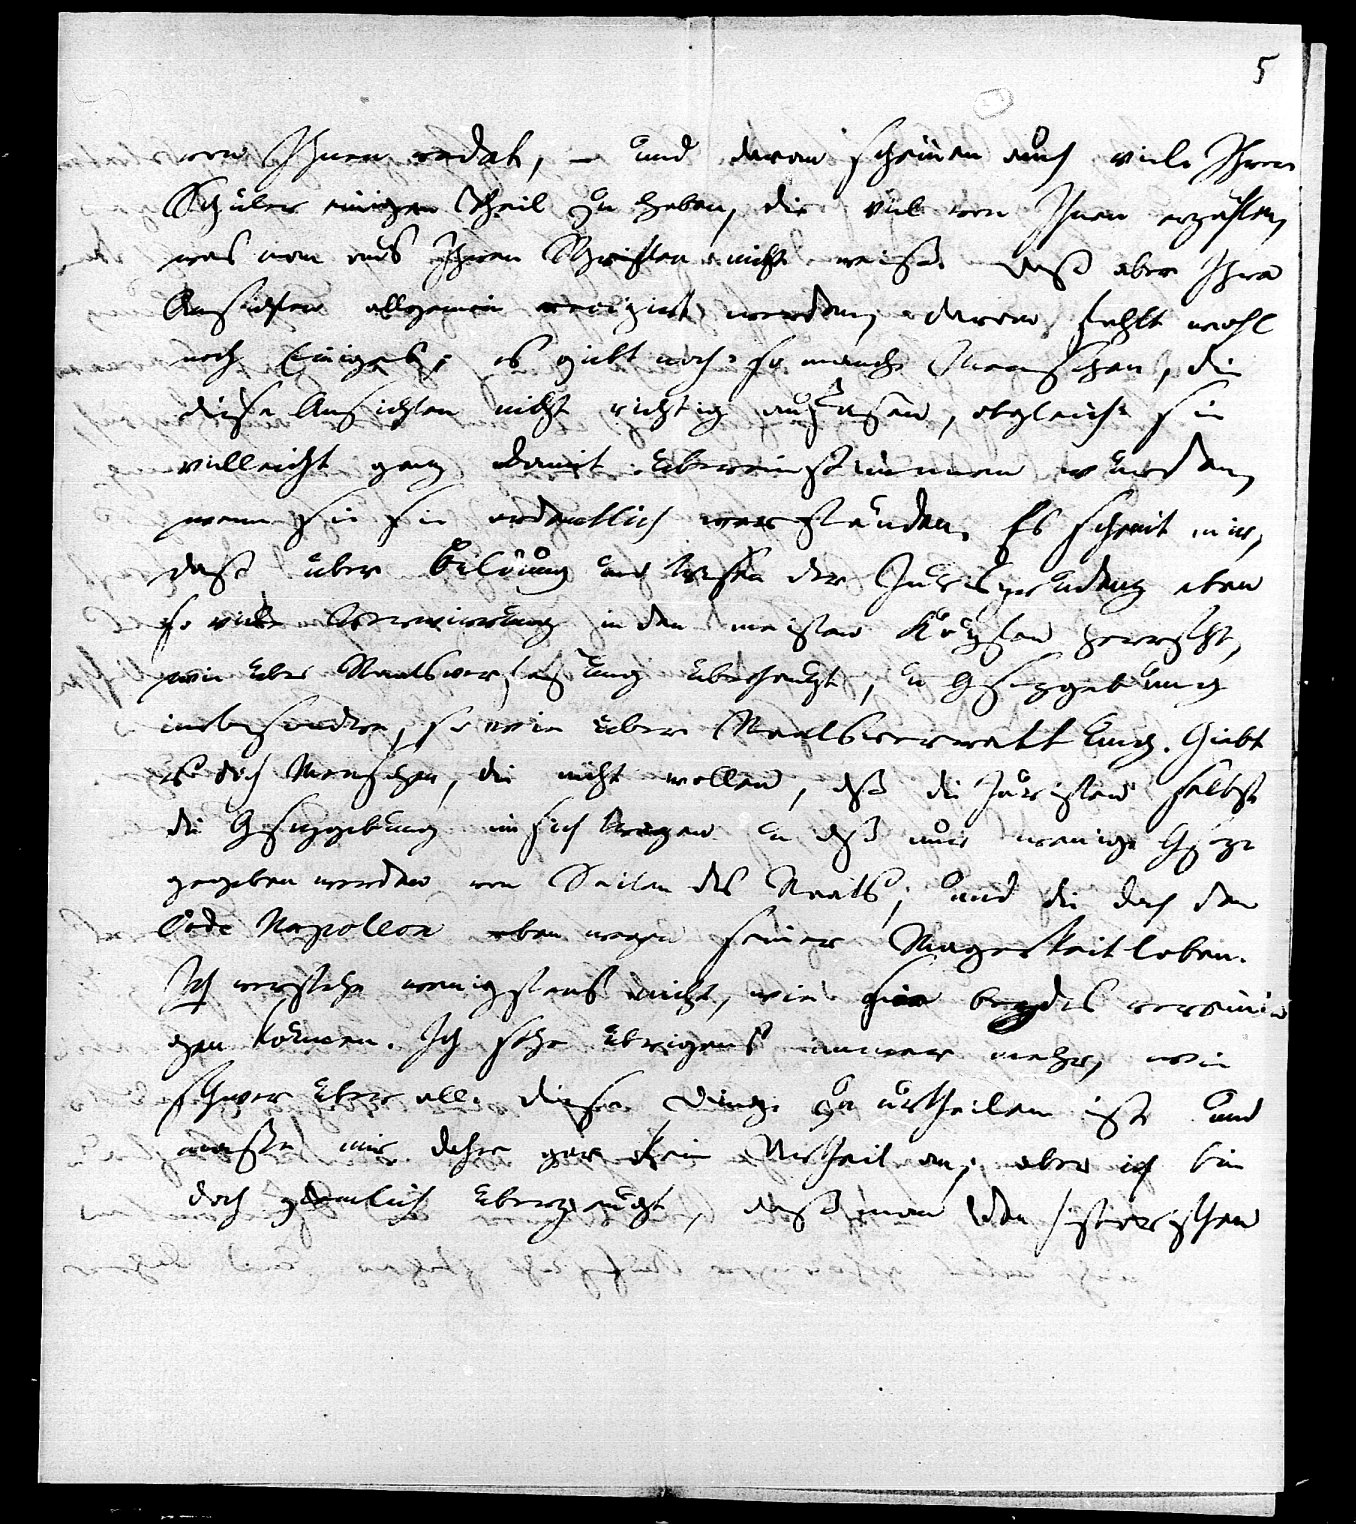 5
von Ihnen redet, – und daran scheinen auch viele Ihrer
Schüler einigen Theil zu haben, die viel von Ihnen erzählen,
was man aus Ihren Schriften nicht weiß. Daß aber Ihre
Ansichten allgemein recipirt werden, daran fehlt wohl
noch Einiges; es giebt noch so manche Menschen, die
diese Ansichten nicht richtig auffassen, obgleich sie
vielleicht ganz damit übereinstimmen würden,
wenn sie sie ordentlich verständen. Es scheint mir,
daß über Bildung und Wesen der Jurisprudenz eben
so viele Verwirrung in den meisten Köpfen herrscht,
wie über Staatsverfassung überhaupt, u Gesezgebung
insbesondre, so wie über Staatsverwaltung. Giebt
es doch Menschen, die nicht wollen, daß die Juristen selbst
die Gesezgebung in sich tragen u daß nur wenige Geseze
gegeben werden von Seiten des Staats; und die doch den
Code Napoleon eben wegen seiner Magerkeit loben.
Ich verstehe wenigstens nicht, wie sie beydes vereini
gen können. Ich sehe übrigens immer mehr, wie
schwer über alle diese Dinge zu urtheilen ist und
maße mir daher gar kein Urtheil an; aber ich bin
doch ziemlich überzeugt, daß man den historischen